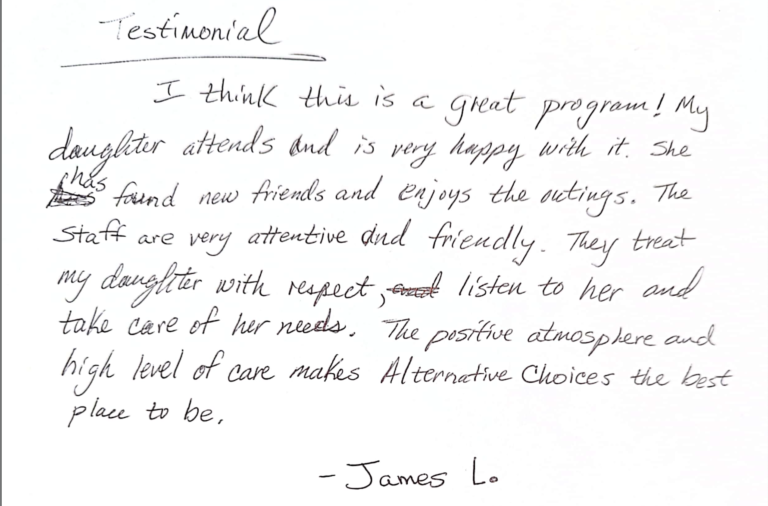 Testimonial
I think this is a great program! My
daughter attends and is very happy with it. She
has found new friends and enjoys the outings. The
staff are very attentive and friendly. They treat
my daughter with respect, listen to her and
take care of her needs. The positive atmosphere and
high level of care makes Alternative Choices the best
place to be.
- James L.